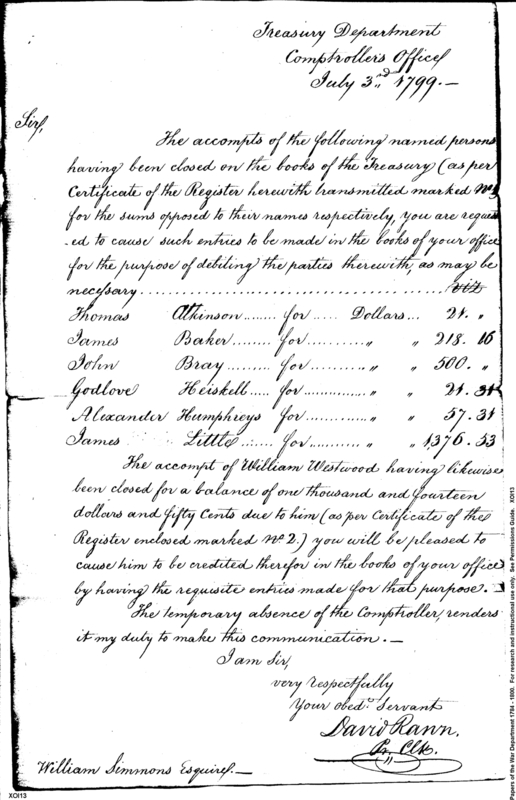 Treasury Department
Comptroller's Office
July 3rd 1799.—
Sir,
The accompts of the following named persons
having been closed on the books of the Treasury (as per
Certificate of the Register herewith transmitted marked No 1
for the sums opposed to their names respectively, you are request
-ed to cause such entries to be made in the books of your office
for the purpose of debiting the parties therewith, as may be
necessary .......... viz
Thomas Atkinson ........ for ..... Dollars ... 21. "
James Baker ........ for ........... " " 218. 16
John Bray ........ for ........... " " 500. "
Godlove Heiskell ..... for ............... " " 21. 31
Alexander Humphreys for ........... " " 57. 31
James Little ....... for ........... " " 1,376. 53
The accompt of William Westwood having likewise
been closed for a balance of one thousand and fourteen
dollars and fifty Cents due to him (as per Certificate of the
Register enclosed marked No 2.) you will be pleased to
cause him to be credited therefor in the books of your office
by having the requisite entries made for that purpose. —
The temporary absence of the Comptroller, renders
it my duty to make this communication. —
I am Sir,
very respectfully
Your obedt. Servant
David Rawn.
Pr. Clk.
William Simmons Esquire. —
XOI13
Papers of the War Department 1784 - 1800. For research and instructional use only. See Permissions Guide. XOI13